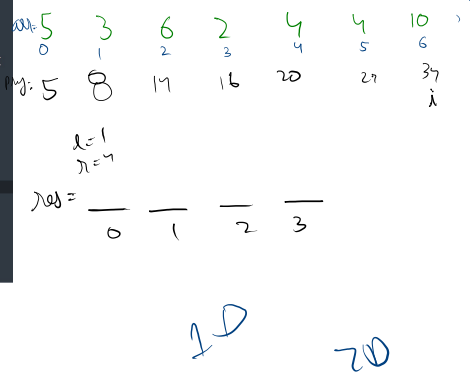 arr: 5 3 6 2 4 4 10
0 1 2 3 4 5 6
5 8 14 16 20 24 34
i
l=1
r=4
res=
0 1 2 3
1D
2D